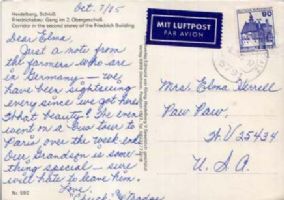 Oct. 7/85
Heidelberg, Schloß
Friedrichsbau: Gang im 2. Obergeschoß
Corridor in the second storey of the Friedrich Building
MIT LUFTPOST
PAR AVION
80
Dear Elma,
Just a note from
the farmers who are
in Germany - we
have been sightseeing
every since we got here
What beauty! We even
went on a bus tour to
Paris over the week end.
Our Grandson is some-
thing special. sure
will hate to leave him.
Love,
Chuck
Mrs. Elma Herrell
Paw Paw
W.V 25434
U.S.A